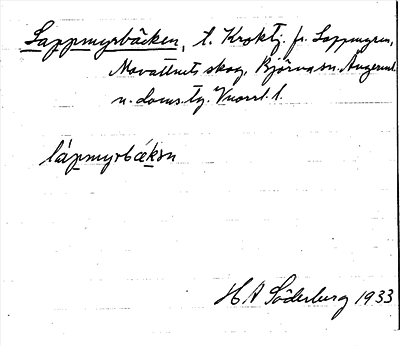 Lappmyrbäcken, t. Kroktj. fr. Lappmyren,
Movattnets skog, Björna sn. Ångerml.
n. doms.tg. Vnorrl. l.
lápmyrbäkɜn
H A Söderberg 1933